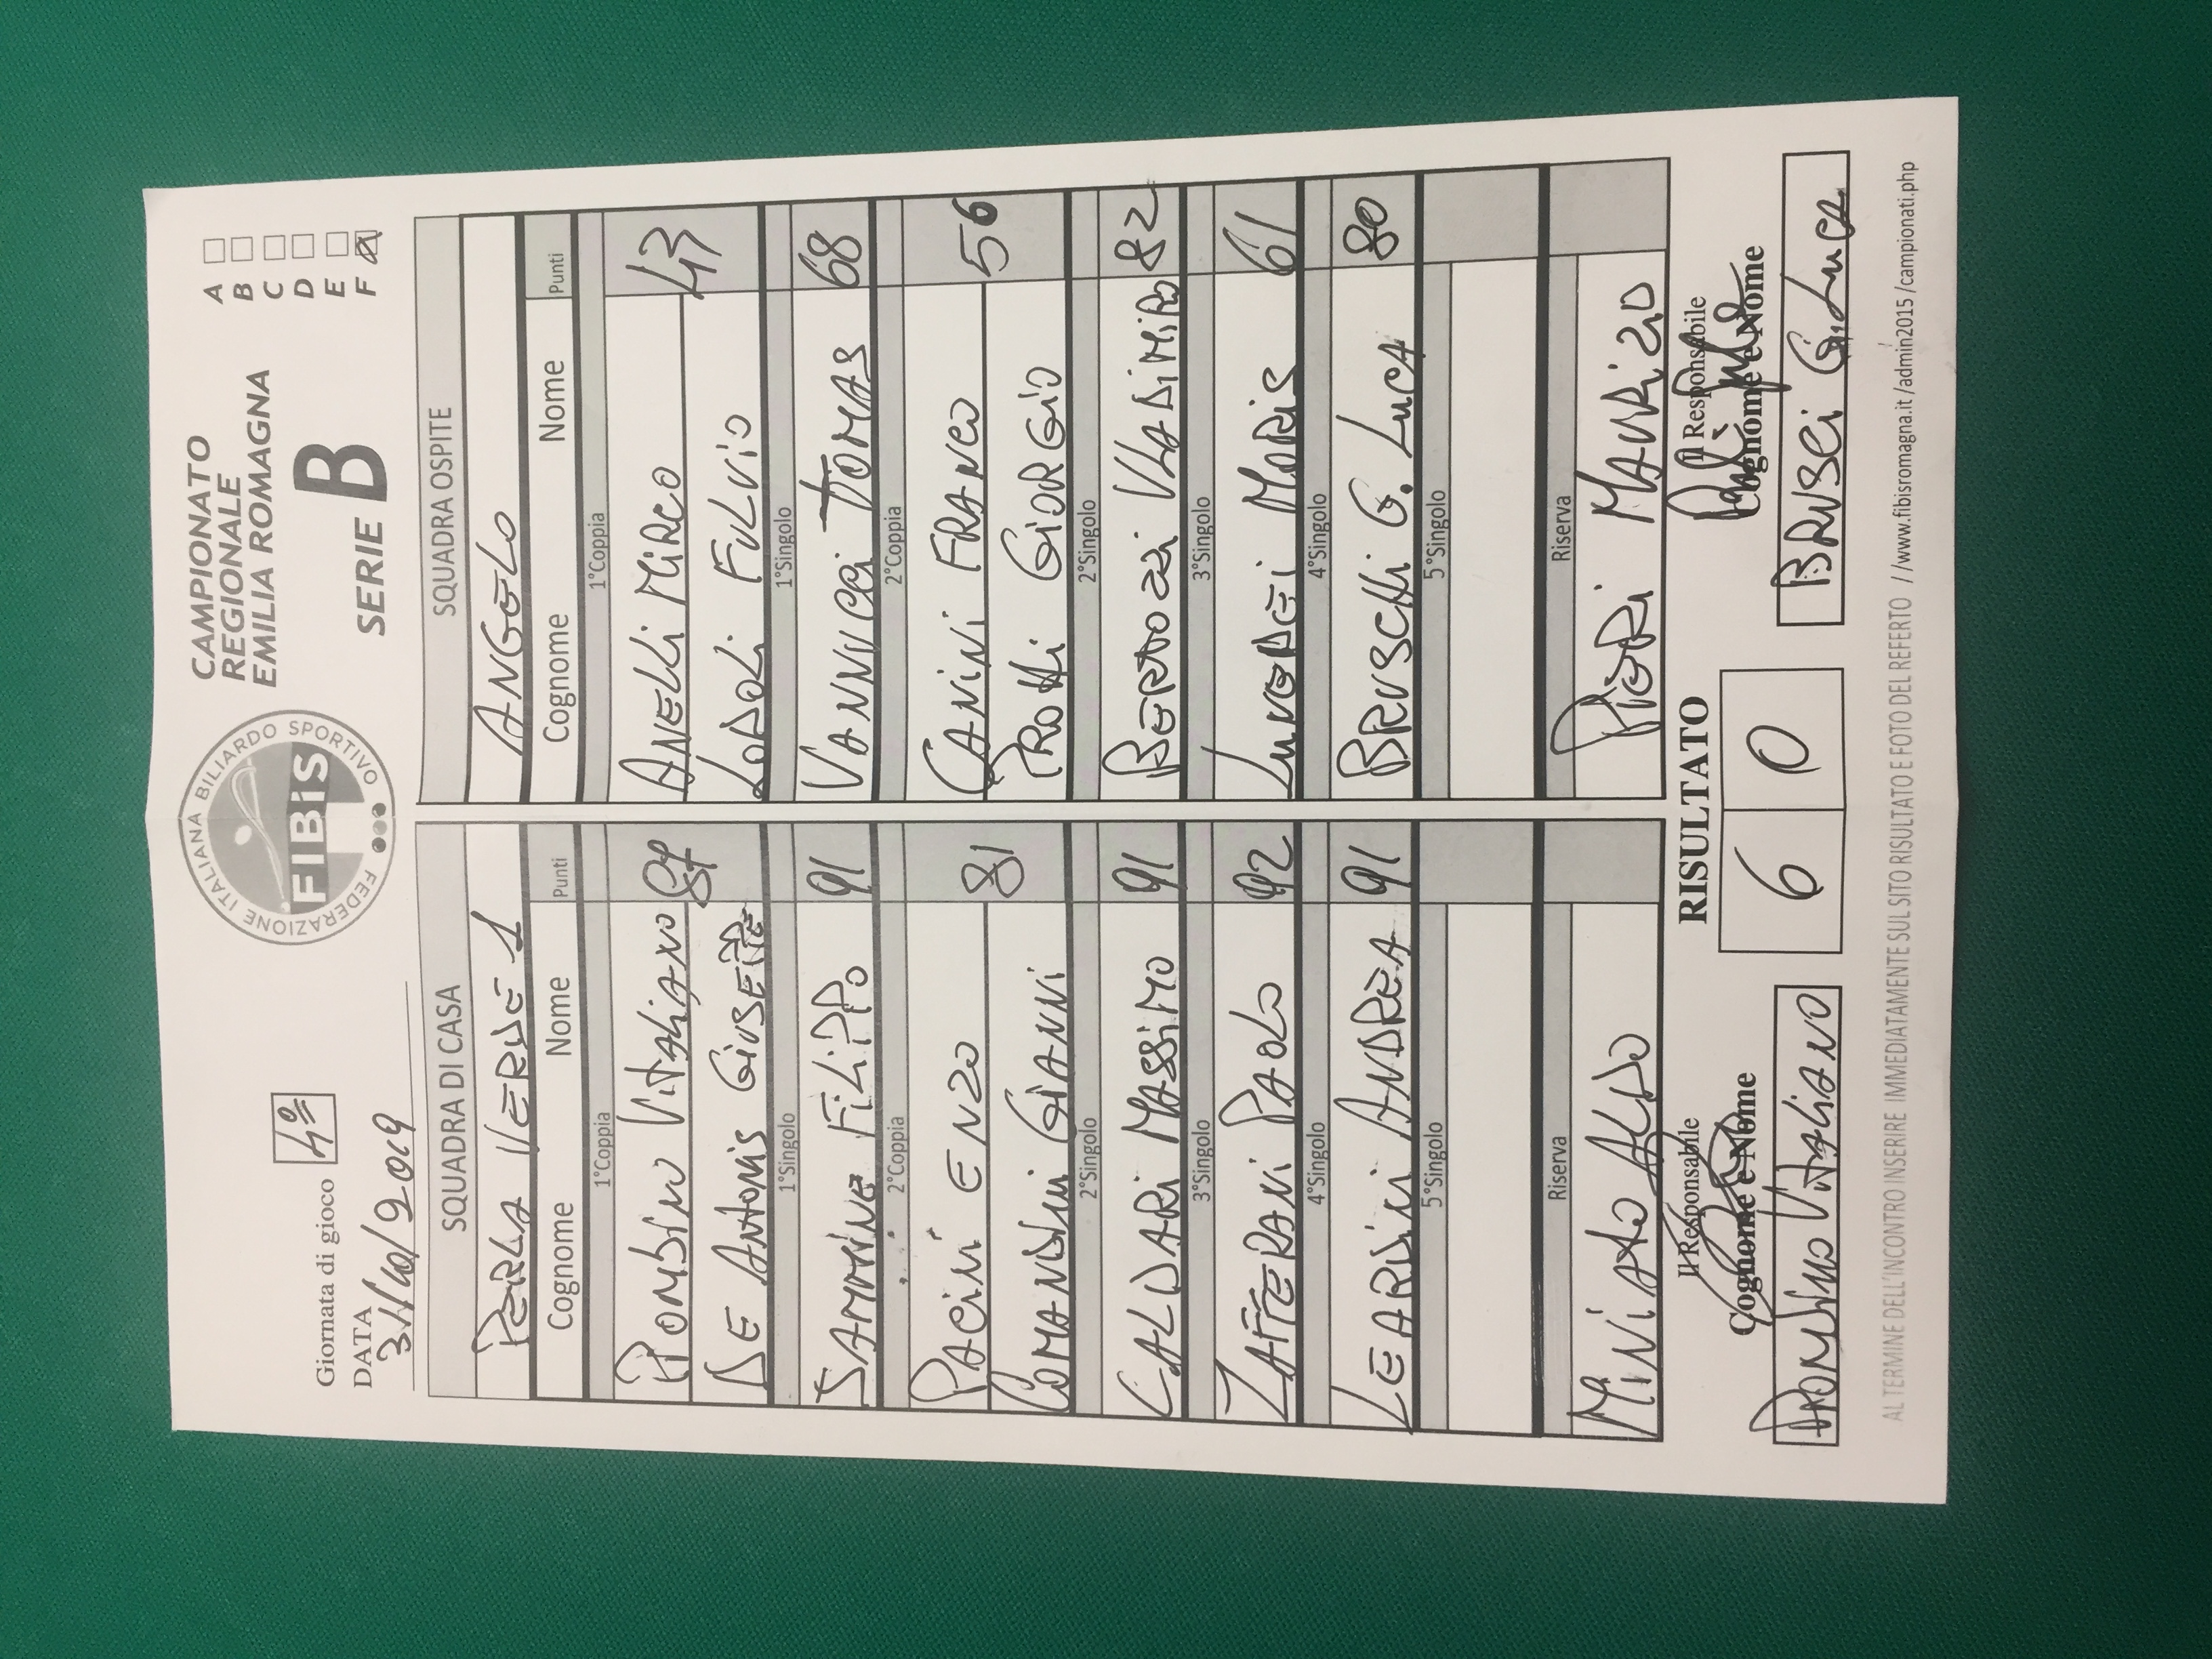 Giornata di gioco 4°
DATA
31/10/2019
FEDERAZIONE ITALIANA BILIARDO SPORTIVO
FIBiS
CAMPIONATO
REGIONALE
EMILIA ROMAGNA
SERIE B
A
B
C
D
E
F
SQUADRA DI CASA
PERLA VERDE 1
Cognome Nome Punti
1°Coppia
PIOMBINO VITALIANO
DE ANTONIS GIUSEPPE
1°Singolo
FILIPPO 91
2°Coppia
PACINI ENZO 81
COMANDINI GIANNI
2°Singolo
CALDARI MASSIMO 91
3°Singolo
ZAFFERANI PAOLO 92
4°Singolo
LEARDINI ANDREA 91
5°Singolo
Riserva
MINIATO ALDO
SQUADRA OSPITE
ANGOLO
Cognome Nome Punti
1°Coppia
ANELLI MIRCO 43
LODOLI FULVIO
1°Singolo
VANNUCCI TOMAS 68
2°Coppia
CANINI FRANCO 56
PROTTI GIORGIO
2°Singolo
BERTOZZI VLADIMIRO 82
3°Singolo
MORIS 61
4°Singolo
BRUSCHI G. LUCA 80
5°Singolo
Riserva
PIERI MAURIZIO
Il Responsabile
Cognome e Nome
PIOMBINO VITALIANO
RISULTATO
6 0
Il Responsabile
Cognome e Nome
BRUSCI GIANLUCA
AL TERMINE DELL'INCONTRO INSERIRE IMMEDIATAMENTE SUL SITO RISULTATO E FOTO DEL REFERTO //www.fibisromagna.it /admin2015 /campionati.php